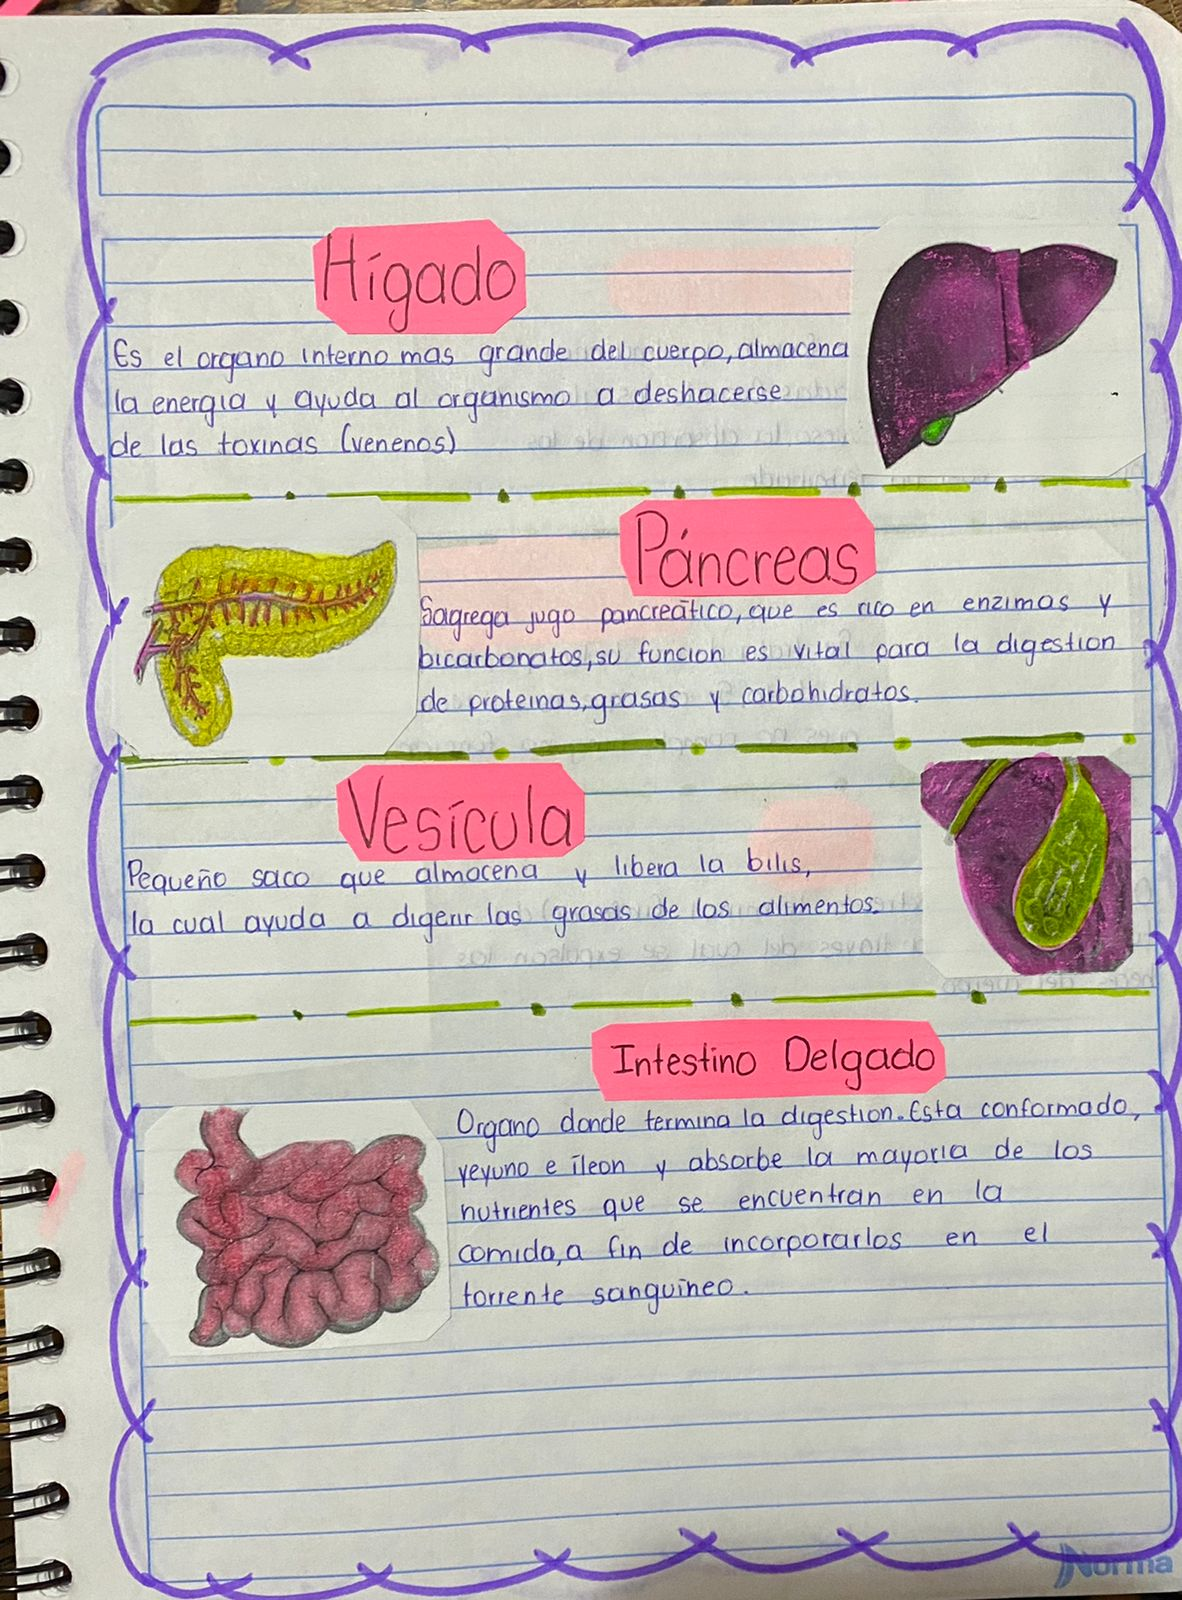 Hígado
Es el organo interno mas grande del cuerpo, almacena
la energia y ayuda al organismo a deshacerse
de las toxinas (venenos)
Páncreas
Sagrega jugo pancreático, que es rico en enzimas y
bicarbonatos, su funcion es vital para la digestion
de proteinas, grasas y carbohidratos.
Vesícula
Pequeño saco que almacena y libera la bilis,
la cual ayuda a digerir las grasas de los alimentos.
Intestino Delgado
Organo donde termina la digestion. Esta conformado,
yeyuno e íleon y absorbe la mayoria de los
nutrientes que se encuentran en la
comida, a fin de incorporarlos en el
torrente sanguíneo.
Norma